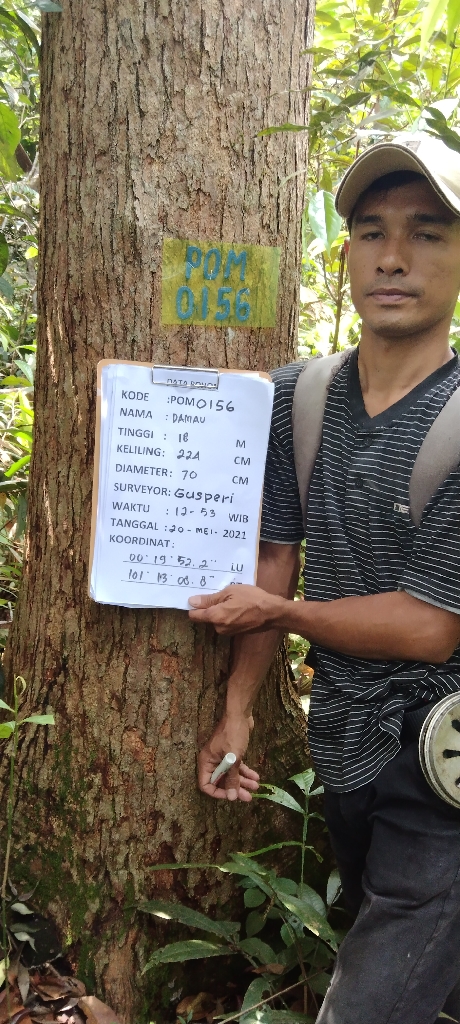 POM
0156
DATA POHON
KODE : POM0156
NAMA : DAMAU
TINGGI : 18 M
KELILING : 22A CM
DIAMETER : 70 CM
SURVEYOR : Gusperi
WAKTU : 12-53 WIB
TANGGAL : 20-MEI-2021
KOORDINAT :
00° 19' 52.2" LU
101° 13' 08.8"